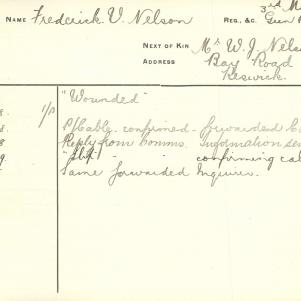 NAME Frederick V. Nelson
REG., &C. 3rd M
Gun
NEXT OF KIN Mr W. J. Nels
ADDRESS Bay Road
Keswick.
8. 1/8 "Wounded"
8 P/Cable confirmed - forwarded C
8 Reply from Comms. Information se
9 " " confirming cal
Same forwarded Inquirer.